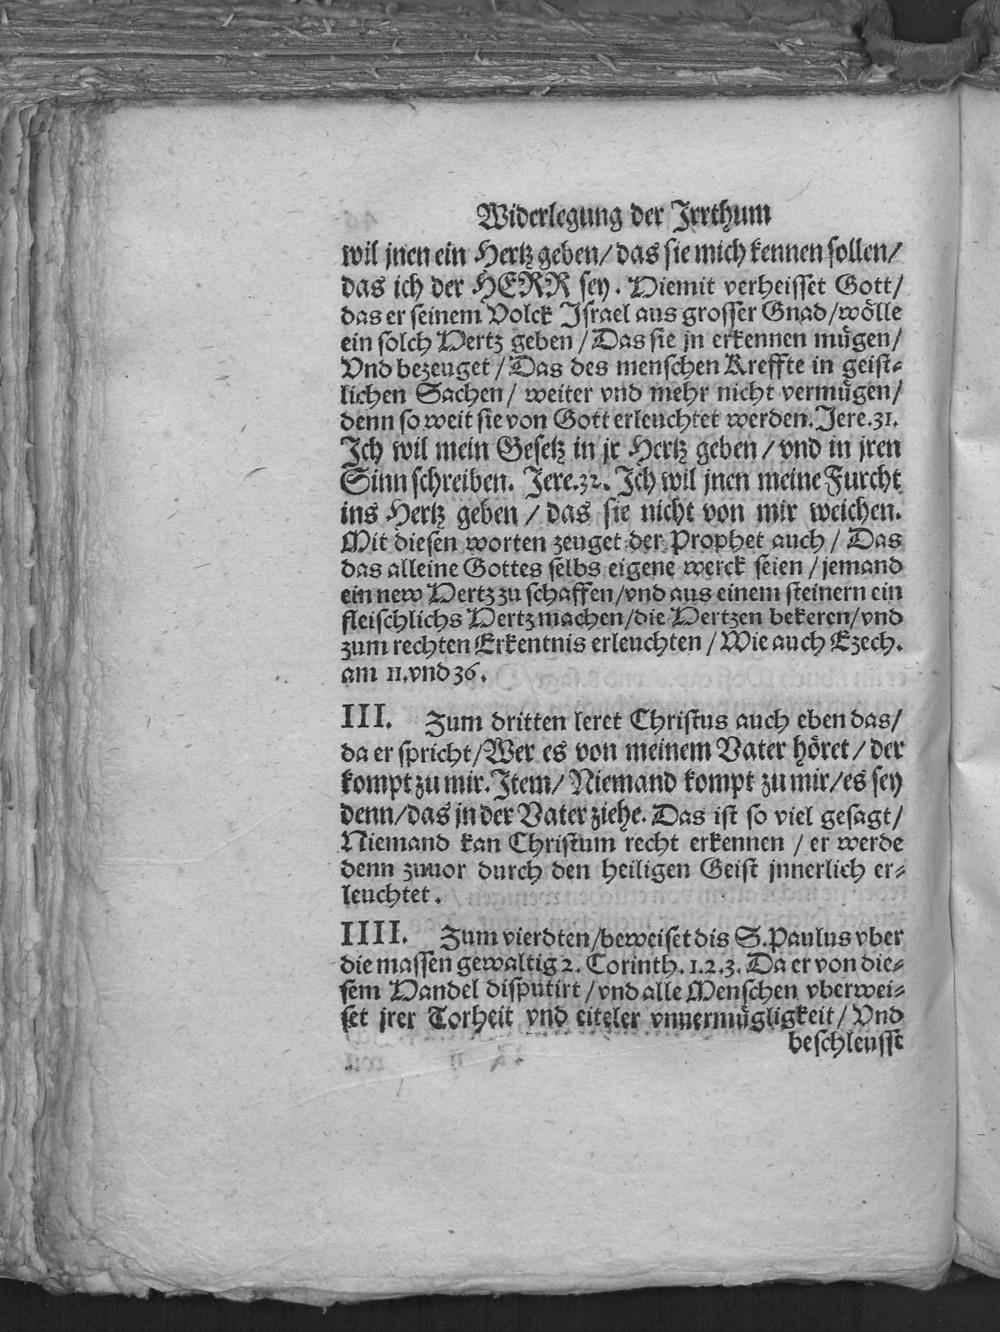 Widerlegung der Jrrthum
wil jnen ein Hertz geben/ das sie mich kennen sollen/
das ich der HERR sey. Hiemit verheisset Gott/
das er seinem Volck Jsrael aus grosser Gnad/wölle
ein solch Hertz geben / Das sie jn erkennen mügen/
Vnd bezeuget / Das des menschen Kreffte in geist-
lichen Sachen/ weiter vnd mehr nicht vermügen/
denn so weit sie von Gott erleuchtet werden. Jere.31.
Jch wil mein Gesetz in jr Hertz geben / vnd in jren
Sinn schreiben. Jere.32. Jch wil jnen meine Furcht
ins Hertz geben / das sie nicht von mir weichen.
Mit diesen worten zeuget der Prophet auch / Das
das alleine Gottes selbs eigene werck seien / jemand
ein new Hertz zu schaffen/vnd aus einem steinern ein
fleischlichs Hertz machen/die Hertzen bekeren/vnd
zum rechten Erkentnis erleuchten / Wie auch Ezech.
am 11.vnd 36.
III. Zum dritten leret Christus auch eben das/
da er spricht/Wer es von meinem Vater höret/ der
kompt zu mir. Jtem/ Niemand kompt zu mir/es sey
denn/das jn der Vater ziehe. Das ist so viel gesagt/
Niemand kan Christum recht erkennen / er werde
denn zuuor durch den heiligen Geist jnnerlich er-
leuchtet.
IIII. Zum vierdten/beweiset dis S.Paulus vber
die massen gewaltig 2. Corinth. 1.2.3. Da er von die-
sem Handel disputirt /vnd alle Menschen vberwei-
set jrer Torheit vnd eiteler vnuermügligkeit/ Vnd
beschleusst